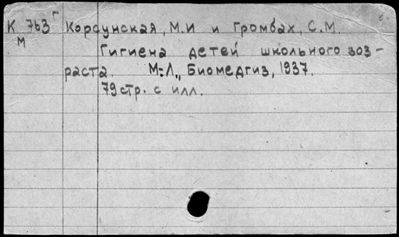 К 763 Г Корсунская, М.И и Громбах, С.М.
М Гигиена детей школьного воз-
раста. М-Л., Биомедгиз, 1937.
79 стр. с илл.